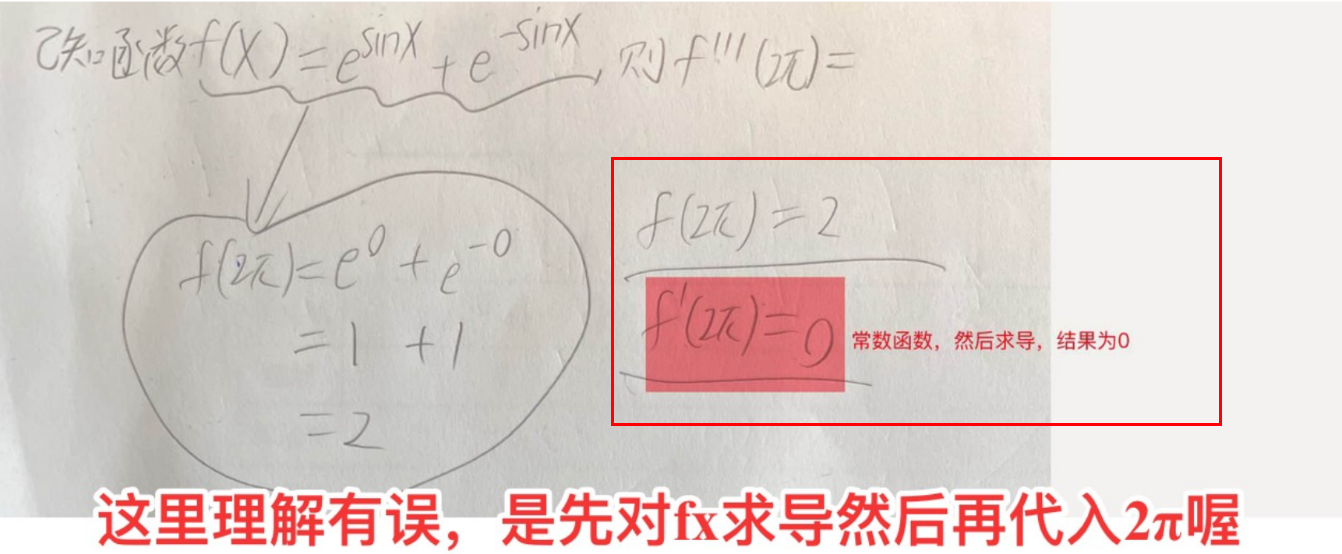 已知函数f(X)=e^sinX+e^-sinX,则f'''(2π)=
f(2π)=e^0+e^-0
=1+1
=2
f(2π)=2
f'(2π)=0
常数函数，然后求导，结果为0
这里理解有误，是先对fx求导然后再代入2π喔